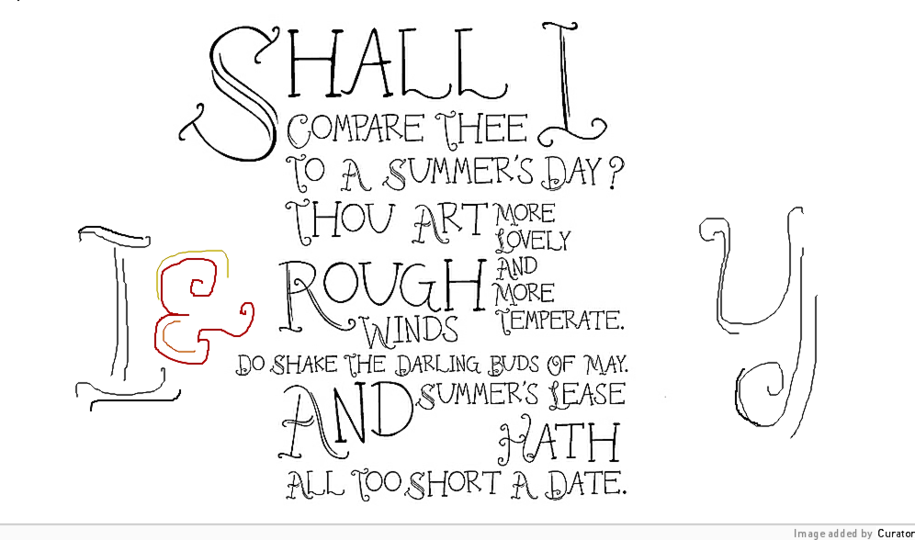 SHALL I
COMPARE THEE
TO A SUMMER'S DAY?
THOU ART MORE
LOVELY
AND
MORE
TEMPERATE.
ROUGH
WINDS
DO SHAKE THE DARLING BUDS OF MAY.
AND SUMMER'S LEASE
HATH
ALL TOO SHORT A DATE.
I & y
Image added by Curator